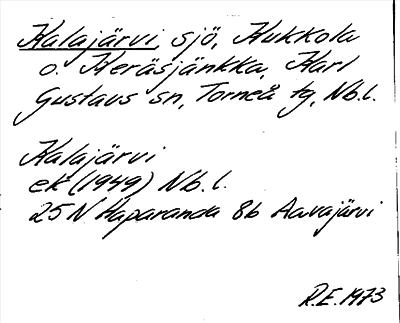 Kalajärvi, sjö, Kukkola
o. Keräsjänkka, Karl
Gustavs sn, Torneå tg, Nb.l.
Kalajärvi
ek (1949) Nb.l.
25 N Haparanda 8b Aavajärvi
R.E. 1973